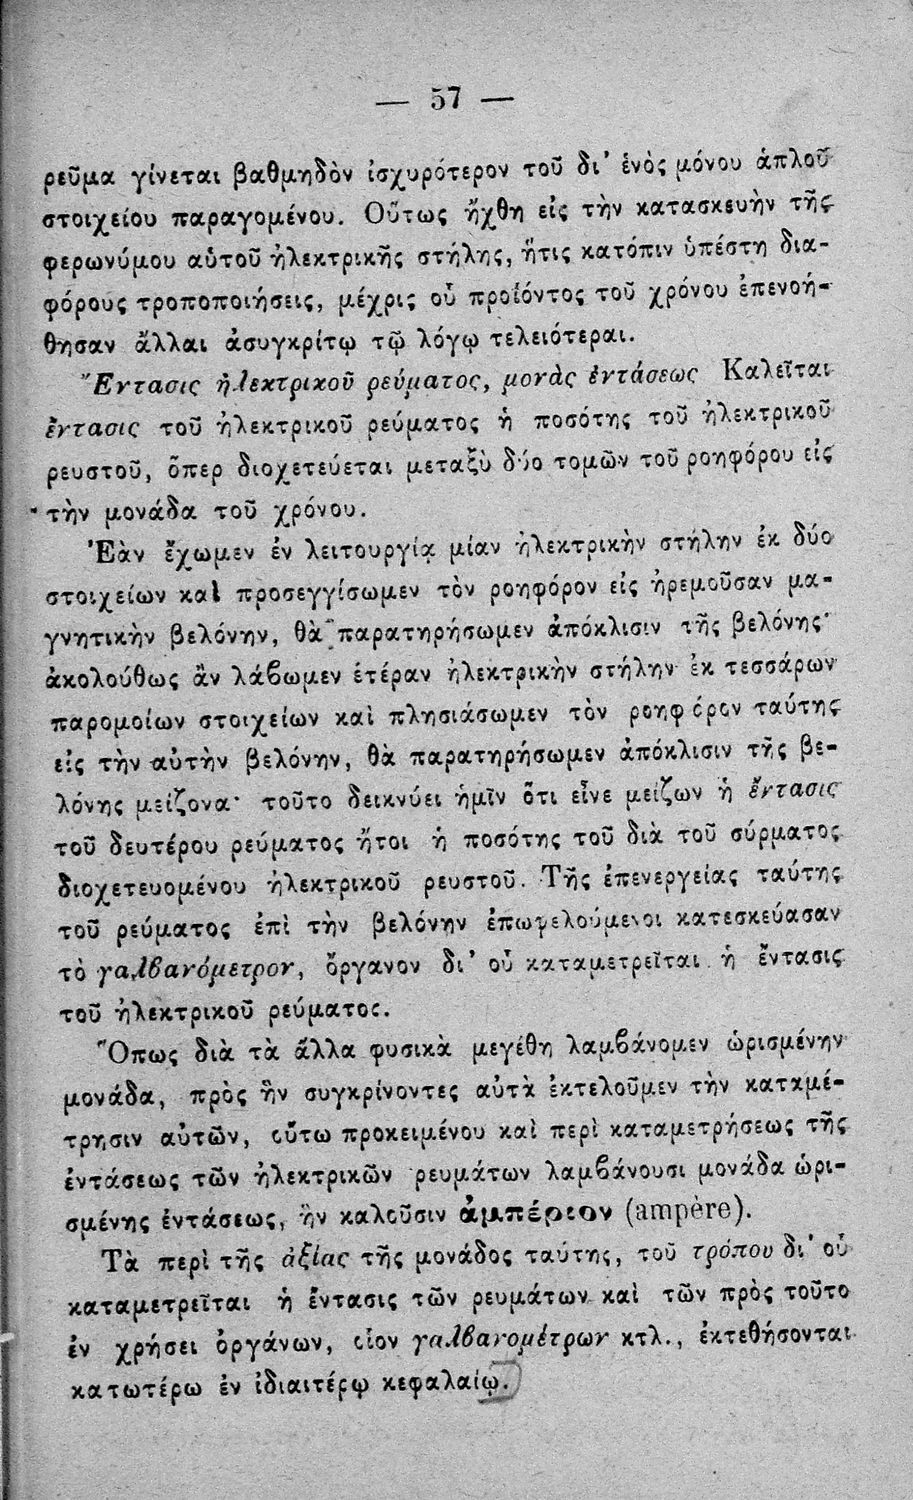 — 57 —
ρεῦμα γίνεται βαθμηδὸν ἰσχυρότερον τοῦ δι' ἑνὸς μόνου ἁπλοῦ
στοιχείου παραγομένου. Οὕτως ἤχθη εἰς τὴν κατασκευὴν τῆς
φερωνύμου αὐτοῦ ἠλεκτρικῆς στήλης, ἥτις κατόπιν ὑπέστη δια-
φόρους τροποποιήσεις, μέχρις οὗ προϊόντος τοῦ χρόνου ἐπενοή-
θησαν ἄλλαι ἀσυγκρίτῳ τῷ λόγῳ τελειότεραι.
Ἔντασις ἠλεκτρικοῦ ρεύματος, μονὰς ἐντάσεως Καλεῖται
ἔντασις τοῦ ἠλεκτρικοῦ ρεύματος ἡ ποσότης τοῦ ἠλεκτρικοῦ
ρευστοῦ, ὅπερ διοχετεύεται μεταξὺ δύο τομῶν τοῦ ροηφόρου εἰς
τὴν μονάδα τοῦ χρόνου.
Ἐὰν ἔχωμεν ἐν λειτουργίᾳ μίαν ἠλεκτρικὴν στήλην ἐκ δύο
στοιχείων καὶ προσεγγίσωμεν τὸν ροηφόρον εἰς ἠρεμοῦσαν μα-
γνητικὴν βελόνην, θὰ παρατηρήσωμεν ἀπόκλισιν τῆς βελόνης·
ἀκολούθως ἂν λάβωμεν ἑτέραν ἠλεκτρικὴν στήλην ἐκ τεσσάρων
παρομοίων στοιχείων καὶ πλησιάσωμεν τὸν ροηφόρον ταύτης
εἰς τὴν αὐτὴν βελόνην, θὰ παρατηρήσωμεν ἀπόκλισιν τῆς βε-
λόνης μείζονα· τοῦτο δεικνύει ἡμῖν ὅτι εἶνε μείζων ἡ ἔντασις
τοῦ δευτέρου ρεύματος ἤτοι ἡ ποσότης τοῦ διὰ τοῦ σύρματος
διοχετευομένου ἠλεκτρικοῦ ρευστοῦ. Τῆς ἐπενεργείας ταύτης
τοῦ ρεύματος ἐπὶ τὴν βελόνην ἐπωφελούμενοι κατεσκεύασαν
τὸ γαλβανόμετρον, ὄργανον δι' οὗ καταμετρεῖται ἡ ἔντασις
τοῦ ἠλεκτρικοῦ ρεύματος.
Ὅπως διὰ τὰ ἄλλα φυσικὰ μεγέθη λαμβάνομεν ὡρισμένην
μονάδα, πρὸς ἣν συγκρίνοντες αὐτὰ ἐκτελοῦμεν τὴν καταμέ-
τρησιν αὐτῶν, οὕτω προκειμένου καὶ περὶ καταμετρήσεως τῆς
ἐντάσεως τῶν ἠλεκτρικῶν ρευμάτων λαμβάνουσι μονάδα ὡρι-
σμένης ἐντάσεως, ἣν καλοῦσιν ἀμπέριον (ampère).
Τὰ περὶ τῆς ἀξίας τῆς μονάδος ταύτης, τοῦ τρόπου δι' οὗ
καταμετρεῖται ἡ ἔντασις τῶν ρευμάτων καὶ τῶν πρὸς τοῦτο
ἐν χρήσει ὀργάνων, οἷον γαλβανομέτρων κτλ., ἐκτεθήσονται
κατωτέρω ἐν ἰδιαιτέρῳ κεφαλαίῳ.